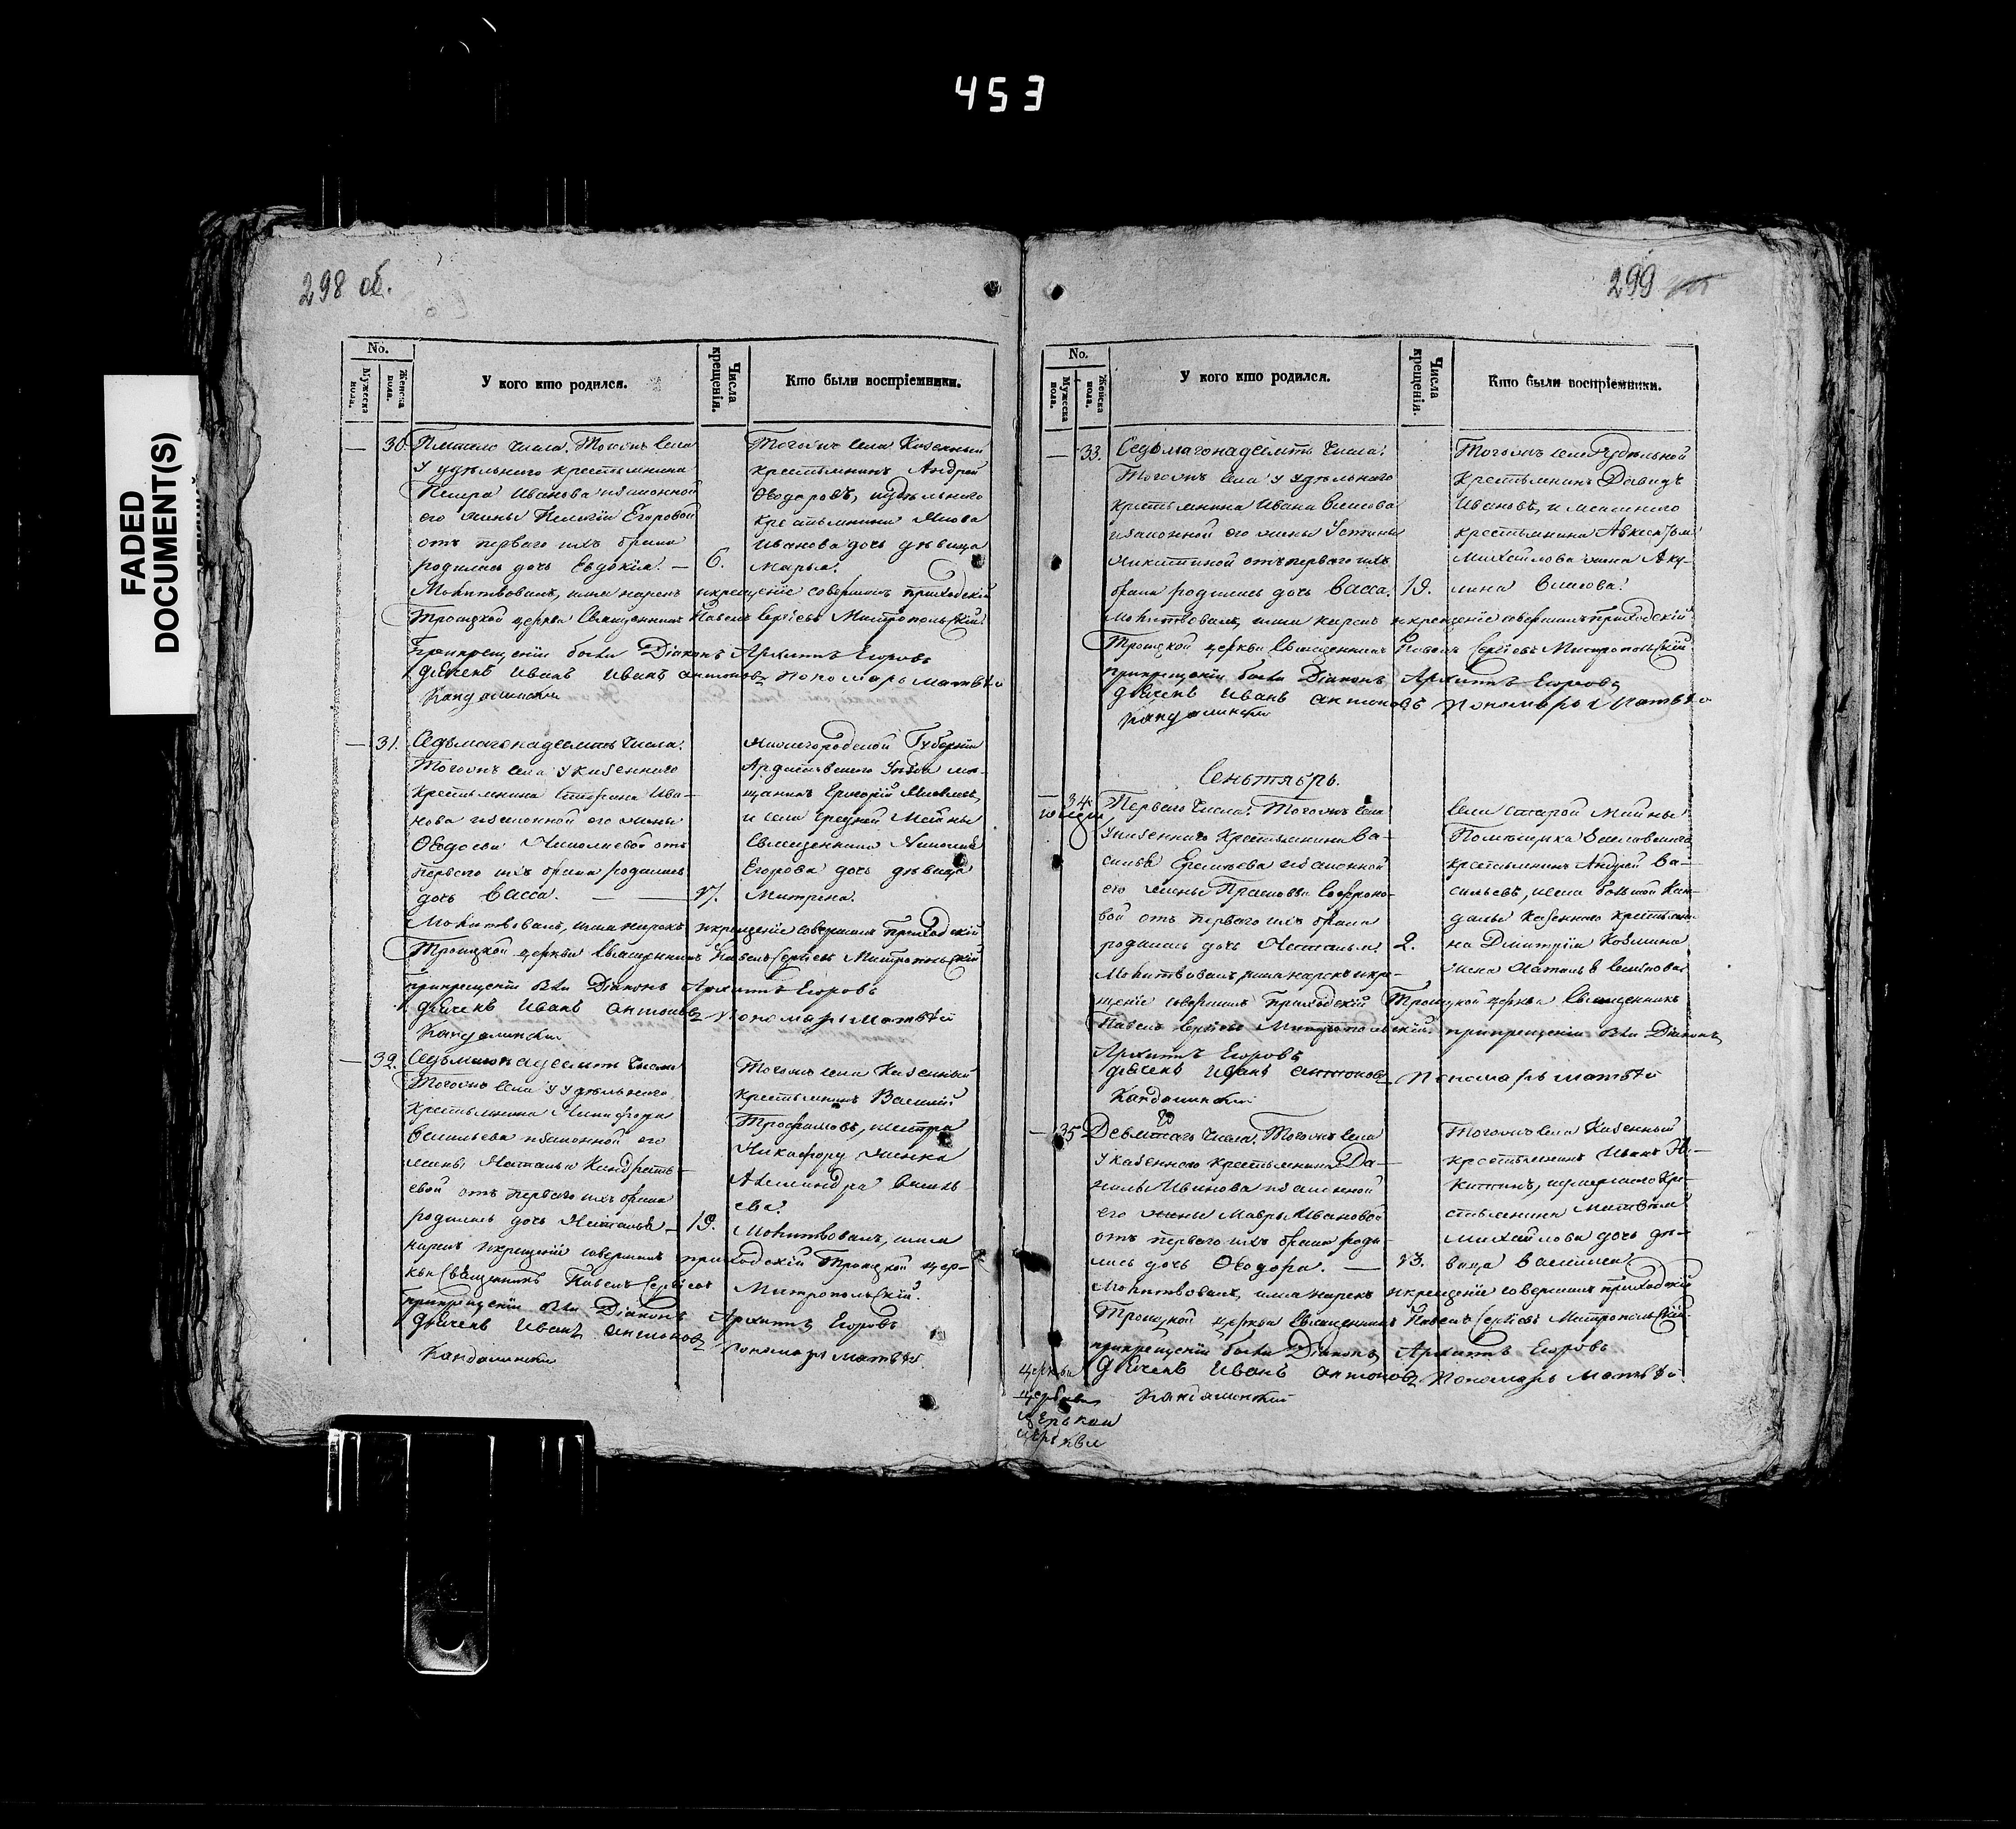 453
FADED
DOCUMENT(S)
298 об.
No.
Мужеска пола.
Женска пола.
У кого кто родился.
Числа крещенія.
Кто были воспріемники.
30. Пятаго числа. Тогожъ села
у удѣльнаго крестьянина
Петра Иванова и законной
его жены Егоровой
отъ перваго ихъ брака
родилась дочь Евдокія. — 6.
Тогожъ села Казенный
крестьянинъ Андрей
Ѳедоровъ, удѣльнаго
крестьянина Якова
Иванова дочь дѣвица
Марья.
Молитвовалъ, имя нарекъ и крещеніе совершилъ приходскій
Троицкой церкви Священникъ Павелъ Сергіевъ Митропольскій
При крещеніи были Діаконъ Архиппъ Егоровъ
Дьячекъ Иванъ Антоновъ Пономарь Матвѣй
Кандалинскій
— 31. Седьмагонадесять числа.
Тогожъ села у казеннаго
крестьянина Стефана Ива-
нова и законной его жены
Ѳедосьи Николаевой отъ
перваго ихъ брака родилась
дочь Васса. —
Нижегородской Губерніи
Ардатовскаго Уѣзда мѣ-
щанинъ Григорій
и села Грязной Майны
Священника
Егорова дочь дѣвица
Матрена.
Молитвовалъ, имя нарекъ и крещеніе совершилъ приходскій
Троицкой церкви Священникъ Павелъ Сергіевъ Митропольскій
при крещеніи были Діаконъ Архиппъ Егоровъ
Дьячекъ Иванъ Антоновъ Пономарь Матвѣй
Кандалинскій
— 32. Седьмагонадесять числа
Тогожъ села у удѣльнаго
крестьянина Никифора
Васильева и законной его
жены Натальи Кондрать-
евой отъ перваго ихъ брака
родилась дочь Наталья — 19.
Тогожъ села Казенный
крестьянинъ Василій
Трофимовъ,
Никифору жена
Александра Василь-
ева.
Молитвовалъ, имя
нарекъ и крещеніе совершилъ приходскій Троицкой цер-
кви Священникъ Павелъ Сергіевъ Митропольскій.
при крещеніи были Діаконъ Архиппъ Егоровъ
Дьячекъ Иванъ Антоновъ Пономарь Матвѣй
Кандалинскій
299
No.
Мужеска пола.
Женска пола.
У кого кто родился.
Числа крещенія.
Кто были воспріемники.
— 33. Седьмагонадесять числа.
Тогожъ села у удѣльнаго
крестьянина Ивана Власова
и законной его жены Устиньи
Никитиной отъ перваго ихъ
брака родилась дочь Васса. 19.
Тогожъ села удѣльной
крестьянинъ Давидъ
Ивановъ, и
крестьянина
Михайлова жена Аку-
лина Власова.
Молитвовалъ, имя нарекъ и крещеніе совершилъ приходскій
Троицкой церкви Священникъ Павелъ Сергіевъ Митропольскій
при крещеніи были Діаконъ Архиппъ Егоровъ
Дьячекъ Иванъ Антоновъ Пономарь Матвѣй
Кандалинскій
Сеньтябрь.
34. Перваго числа. Тогожъ села
у казеннаго крестьянина Ва-
силья и законной
его жены Прасковьи Софроно-
вой отъ перваго ихъ брака
родилась дочь Наталья. 2.
Села Старой Майны
Помѣщика
крестьянинъ Андрей Ва-
сильевъ, и села Большой Кан-
далы Казеннаго крестьяни-
на Дмитрія Козмина
жена Наталья Семенова
Молитвовалъ, имя нарекъ и кре-
щеніе совершилъ приходскій Троицкой церкви Священникъ
Павелъ Сергіевъ Митропольскій. при крещеніи были Діаконъ
Архиппъ Егоровъ
Дьячекъ Иванъ Антоновъ Пономарь Матвѣй
Кандалинскій
— 35 Девятаго числа. Тогожъ села
у казеннаго крестьянина Да-
нилы Иванова и законной
его жены Мавры Ивановой
отъ перваго ихъ брака роди-
лась дочь Ѳеодора. —
Тогожъ села Казенный
крестьянинъ Иванъ Ни-
китинъ, кре-
стьянина Матвѣя
Михайлова дочь дѣ-
вица Василиса
Молитвовалъ, имя нарекъ и крещеніе совершилъ приходскій
Троицкой церкви Священникъ Павелъ Сергіевъ Митропольскій
при крещеніи были Діаконъ Архиппъ Егоровъ
Дьячекъ Иванъ Антоновъ Пономарь Матвѣй
Кандалинскій
церкви
церкви